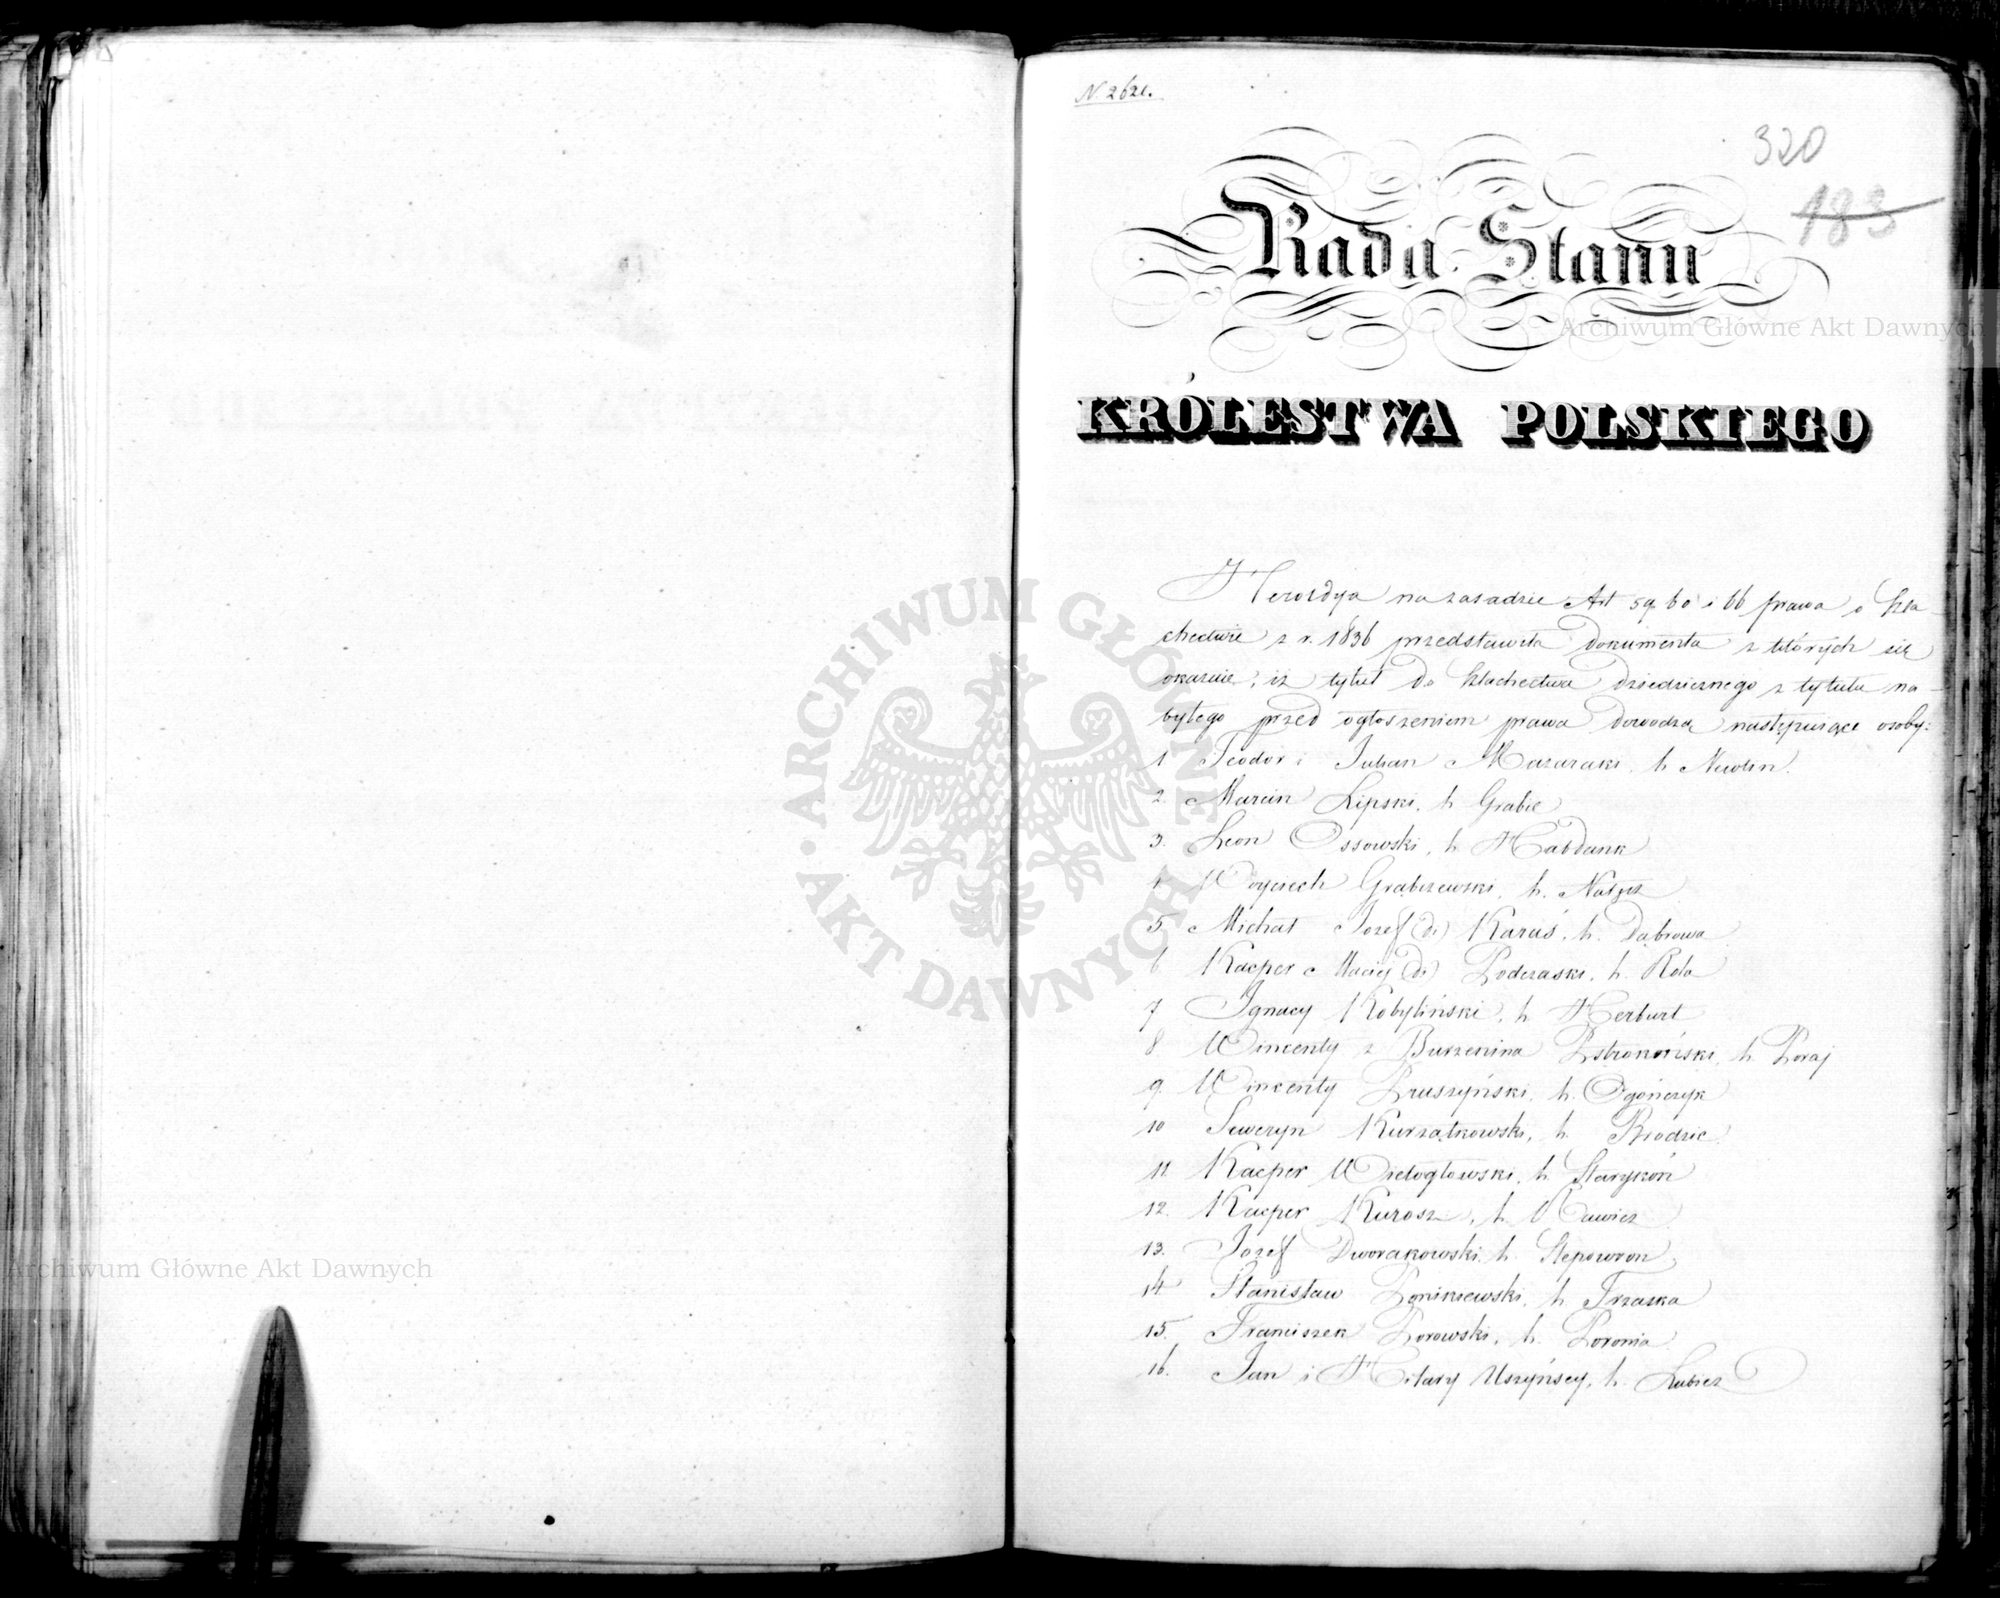 N. 2621.
320
183
Rada Stanu
KRÓLESTWA POLSKIEGO
Heroldya na zasadzie Art 59, 60 i 66 prawa o szla-
chectwie z r. 1836 przedstawiła dokumenta z których się
okazuie, iż tytuł do szlachectwa dziedzicznego z tytułu na-
bytego przed ogłoszeniem prawa dowodzą następuiące osoby:
1 Teodor i Julian Mazaraki, h. Newlin.
2. Marcin Lipski, h. Grabie
3. Leon Ossowski, h. Habdank
4 Woyciech Grabczewski, h. Nałęcz
5. Michał Jozef (2i) Karaś, h. Dąbrowa
6. Kacper Maciej (2i) Podczaski, h. Rola
7 Ignacy Kobyliński, h. Herburt
8 Wincenty z Burzenina Pstrokoński, h. Poraj
9. Wincenty Pruszyński, h. Ogończyk
10 Seweryn Kurzątkowski, h. Brodzic
11 Kacper Wielogłowski, h. Starykoń
12. Kacper Kurosz, h. Rawicz
13. Jozef Dworakowski, h. Slepowron
14 Stanisław Ponikiewski, h. Trzaska
15. Franciszek Porowski, h. Poronia
16. Jan i Hilary Uszyńscy, h. Lubicz
Archiwum Główne Akt Dawnych
Archiwum Główne Akt Dawnych
ARCHIWUM GŁÓWNE AKT DAWNYCH